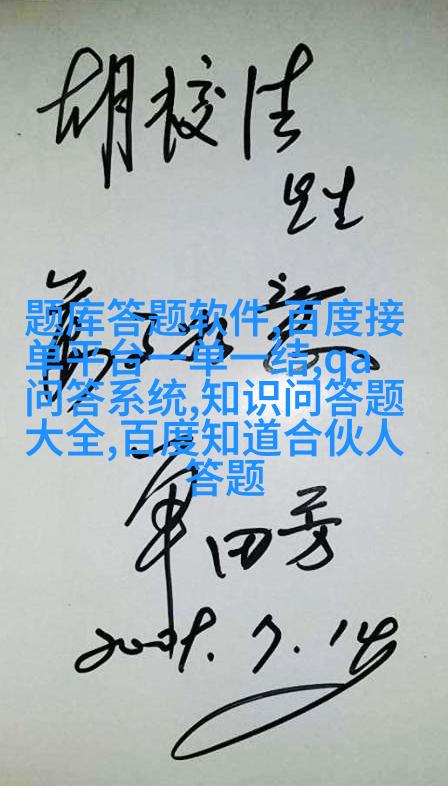 胡校
先生
题库答题软件,百度接
单平台一单一结,qa
问答系统,知识问答题
大全,百度知道合伙人
答题
单田芳